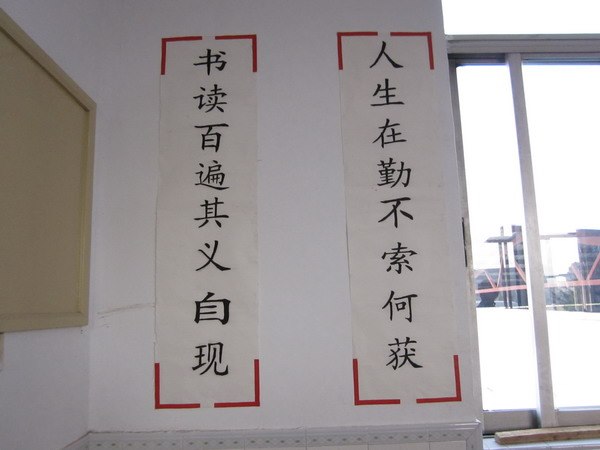 人生在勤不索何获
书读百遍其义自现